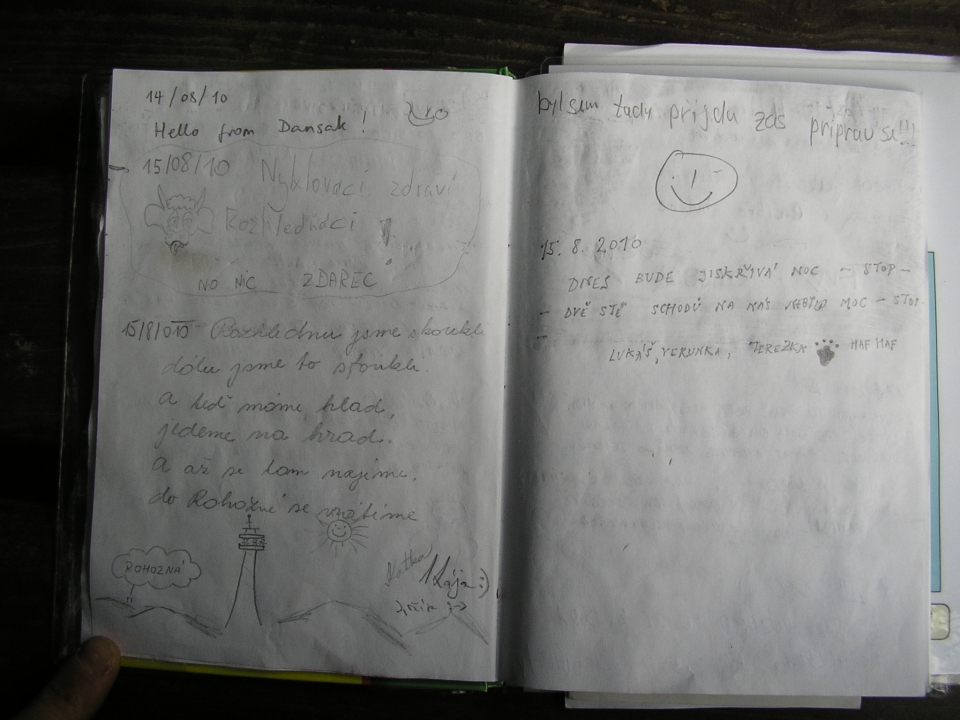 14/08/10
Hello from Dansak!
15/08/10 zdraví
Rozhledňáci
NO NIC ZDAREC
15/8/010 Rozhlednu jsme skoukli
dólu jsme to sfoukli.
a teď máme hlad,
jedeme na hrad.
a až se tam najíme,
do Rohozné se vrátíme
ROHOZNÁ
Katka
Kája :)
byl sem tady přijdu zas připrav se!!!
15. 8. 2010
DNES BUDE JISKŘIVÁ NOC - STOP -
- DVĚ STĚ SCHODŮ NA NÁS NEBYLO MOC - STOP -
LUKÁŠ, VERUNKA, TEREZKA HAF HAF